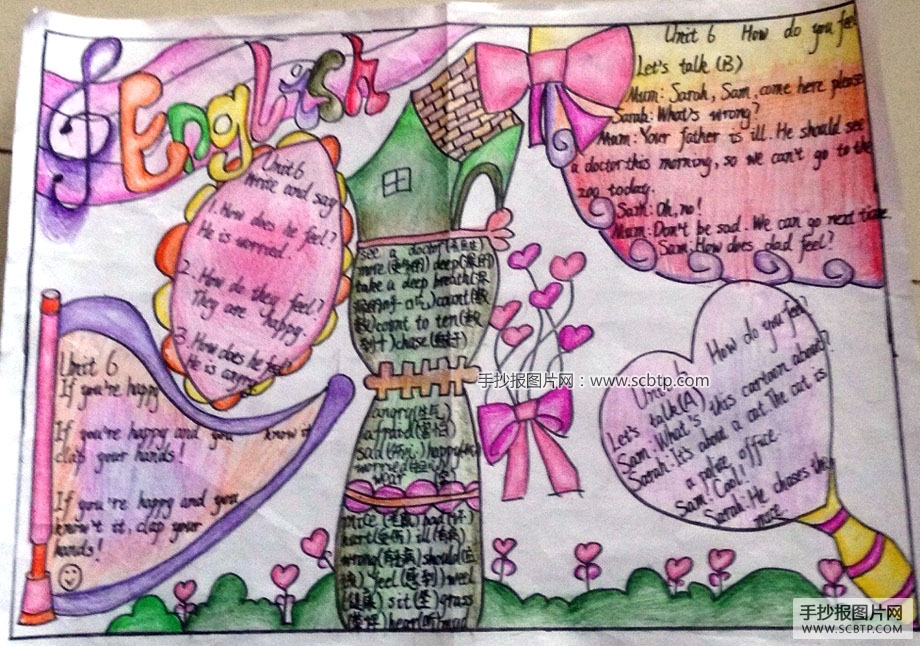 English
Unit 6
Write and say
1. How does he feel?
He is worried.
2. How do they feel?
They are happy.
3. How does he feel?
He is angry.
Unit 6
If you're happy
If you're happy and you know it
clap your hands!
If you're happy and you
know't it, clap your
hands!
see a doctor
more deep
take a deep breath
count
count to ten
chase
angry(生气)
afraid(害怕)
sad happy
worried
wear
mice bad
hurt ill
wrong should
feel well
sit(坐) grass
hear
Unit 6 How do you feel
Let's talk (B)
Mum: Sarah, Sam, come here please
Sarah: What's wrong?
Mum: Your father is ill. He should see
a doctor this morning, so we can't go to the
zoo today.
Sam: Oh, no!
Mum: Don't be sad. We can go next time.
Sam: How does dad feel?
手抄报图片网：www.scbtp.com
Unit 6 How do you feel?
Let's talk(A)
Sam: What's this cartoon about?
Sarah: It's about a cat. The cat is
a police office.
Sam: Cool!
Sarah: He chases the
mice.
手抄报图片网
WWW.SCBTP.COM